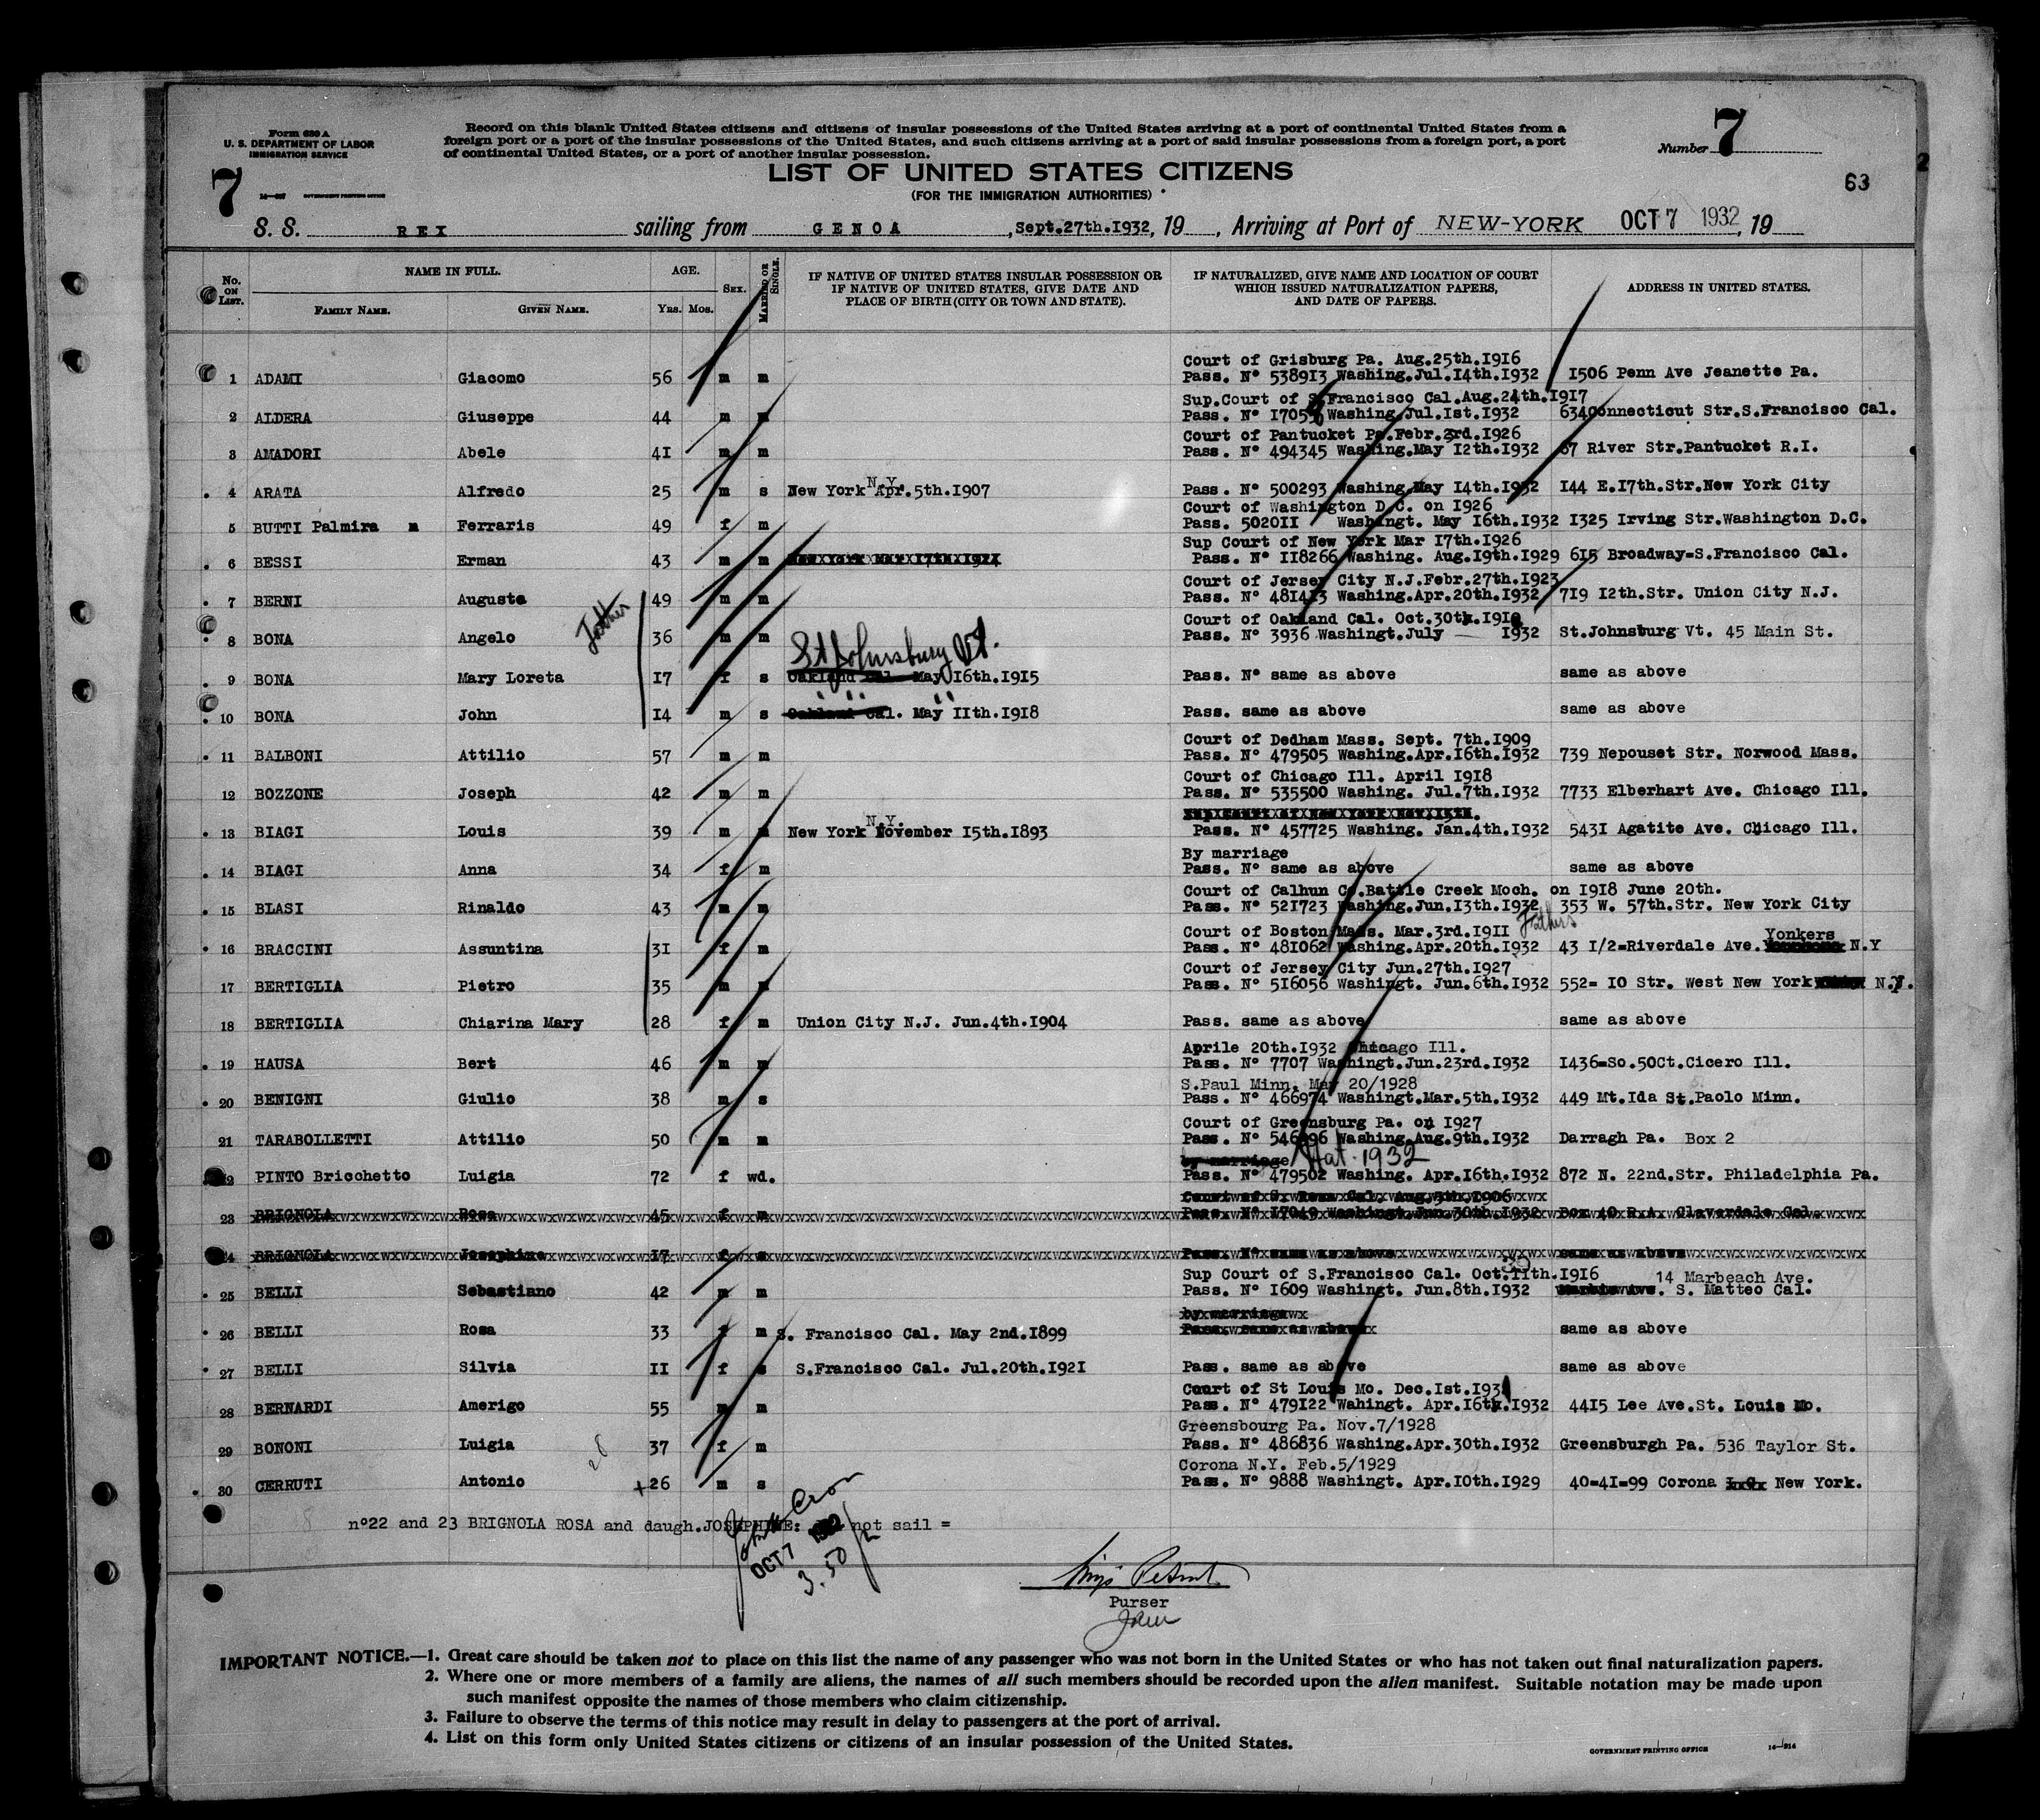 Form 630 A
U. S. DEPARTMENT OF LABOR
IMMIGRATION SERVICE
Record on this blank United States citizens and citizens of insular possessions of the United States arriving at a port of continental United States from a
foreign port or a port of the insular possessions of the United States, and such citizens arriving at a port of said insular possessions from a foreign port, a port
of continental United States, or a port of another insular possession.
Number 7
7
GOVERNMENT PRINTING OFFICE
LIST OF UNITED STATES CITIZENS
(FOR THE IMMIGRATION AUTHORITIES)
63
2
S. S. REX sailing from GENOA, Sept.27th.1932, 19 , Arriving at Port of NEW-YORK OCT 7 1932, 19
No. ON LIST. NAME IN FULL. AGE. SEX. MARRIED OR SINGLE. IF NATIVE OF UNITED STATES INSULAR POSSESSION OR IF NATIVE OF UNITED STATES, GIVE DATE AND PLACE OF BIRTH (CITY OR TOWN AND STATE). IF NATURALIZED, GIVE NAME AND LOCATION OF COURT WHICH ISSUED NATURALIZATION PAPERS, AND DATE OF PAPERS. ADDRESS IN UNITED STATES.
FAMILY NAME. GIVEN NAME. Yrs. Mos.
Court of Grisburg Pa. Aug.25th.1916
1 ADAMI Giacomo 56 m m Pass. N° 538913 Washing.Jul.14th.1932 1506 Penn Ave Jeanette Pa.
Sup.Court of S.Francisco Cal.Aug.24th.1917
2 ALDERA Giuseppe 44 m m Pass. N° Washing.Jul.1st.1932 634Connecticut Str.S.Francisco Cal.
Court of Pantucket Pa.Febr.3rd.1926
3 AMADORI Abele 41 m m Pass. N° 494345 Washing.May 12th.1932 67 River Str.Pantucket R.I.
N.Y.
4 ARATA Alfredo 25 m s New York Apr.5th.1907 Pass. N° 500293 Washing.May 14th.1932 144 E.17th.Str.New York City
Court of Washington D.C. on 1926
5 BUTTI Palmira m Ferraris 49 f m Pass. 502011 Washingt. May 16th.1932 1325 Irving Str.Washington D.C.
Sup Court of New York Mar 17th.1926
6 BESSI Erman 43 m m Pass. N° 118266 Washing. Aug.19th.1929 615 Broadway=S.Francisco Cal.
Court of Jersey City N.J.Febr.27th.1923
7 BERNI Auguste 49 m m Pass. N° 481413 Washing.Apr.20th.1932 719 12th.Str. Union City N.J.
Father
Court of Oakland Cal. Oct.30th.191
8 BONA Angelo 36 m m Pass. N° 3936 Washingt.July 1932 St.Johnsburg Vt. 45 Main St.
St Johnsbury Vt.
9 BONA Mary Loreta 17 f s Oakland Cal. May 16th.1915 Pass. N° same as above same as above
" " "
10 BONA John 14 m s Oakland Cal. May 11th.1918 Pass. same as above same as above
Court of Dedham Mass. Sept. 7th.1909
11 BALBONI Attilio 57 m m Pass. N° 479505 Washing.Apr.16th.1932 739 Nepouset Str. Norwood Mass.
Court of Chicago Ill. April 1918
12 BOZZONE Joseph 42 m m Pass. N° 535500 Washing. Jul.7th.1932 7733 Elberhart Ave. Chicago Ill.
N.Y.
13 BIAGI Louis 39 m m New York November 15th.1893 Pass. N° 457725 Washing. Jan.4th.1932 5431 Agatite Ave. Chicago Ill.
By marriage
14 BIAGI Anna 34 f m Pass. N° same as above same as above
Court of Calhun Co.Battle Creek Moch. on 1918 June 20th.
15 BLASI Rinaldo 43 m m Pass. N° 521723 Washing.Jun.13th.1932 353 W. 57th.Str. New York City
Court of Boston Mass. Mar.3rd.1911 Fathers Yonkers
16 BRACCINI Assuntina 31 f m Pass. N° 481062 Washing.Apr.20th.1932 43 1/2=Riverdale Ave. N.Y
Court of Jersey City Jun.27th.1927
17 BERTIGLIA Pietro 35 m m Pass. N° 516056 Washingt. Jun.6th.1932 552= 10 Str. West New York N.J.
18 BERTIGLIA Chiarina Mary 28 f m Union City N.J. Jun.4th.1904 Pass. same as above same as above
Aprile 20th.1932 Chicago Ill.
19 HAUSA Bert 46 m m Pass. N° 7707 Washingt.Jun.23rd.1932 1436=So.50Ct.Cicero Ill.
S.Paul Minn. May 20/1928
20 BENIGNI Giulio 38 m s Pass. N° 466974 Washingt.Mar.5th.1932 449 Mt.Ida St.Paolo Minn.
Court of Greensburg Pa. on 1927
21 TARABOLLETTI Attilio 50 m m Pass. N° Washing.Aug.9th.1932 Darragh Pa. Box 2
by marriage Nat. 1932
22 PINTO Bricchetto Luigia 72 f wd. Pass. N° 479502 Washing. Apr.16th.1932 872 N. 22nd.Str. Philadelphia Pa.
Court of S. Rosa Cal. Aug.5th.1906
23 BRIGNOLA Rosa 45 f m Pass. N° 17049 Washingt.Jun.30th.1932 Box 40 R.A. Claverdale Cal.
24 BRIGNOLA Josephine 17 f s Pass. N° same as above same as above
Sup Court of S.Francisco Cal. Oct.11th.1916 14 Marbeach Ave.
25 BELLI Sebastiano 42 m m Pass. N° 1609 Washingt. Jun.8th.1932 S. Matteo Cal.
by marriage
26 BELLI Rosa 33 f m S. Francisco Cal. May 2nd.1899 Pass. same as above same as above
27 BELLI Silvia 11 f s S.Francisco Cal. Jul.20th.1921 Pass. same as above same as above
Court of St Louis Mo. Dec.1st.1931
28 BERNARDI Amerigo 55 m m Pass. N° 479122 Wahingt. Apr.16th.1932 4415 Lee Ave.St. Louis Mo.
Greensbourg Pa. Nov.7/1928
29 BONONI Luigia 37 f m Pass. N° 486836 Washing.Apr.30th.1932 Greensburgh Pa. 536 Taylor St.
Corona N.Y. Feb.5/1929
30 CERRUTI Antonio +26 m s Pass. N° 9888 Washingt. Apr.10th.1929 40=41=99 Corona New York.
28
n°22 and 23 BRIGNOLA ROSA and daugh.JOSEPHINE: not sail =
OCT 7 1932
3.50
Purser
IMPORTANT NOTICE.—1. Great care should be taken not to place on this list the name of any passenger who was not born in the United States or who has not taken out final naturalization papers.
2. Where one or more members of a family are aliens, the names of all such members should be recorded upon the alien manifest. Suitable notation may be made upon
such manifest opposite the names of those members who claim citizenship.
3. Failure to observe the terms of this notice may result in delay to passengers at the port of arrival.
4. List on this form only United States citizens or citizens of an insular possession of the United States.
GOVERNMENT PRINTING OFFICE 14—914